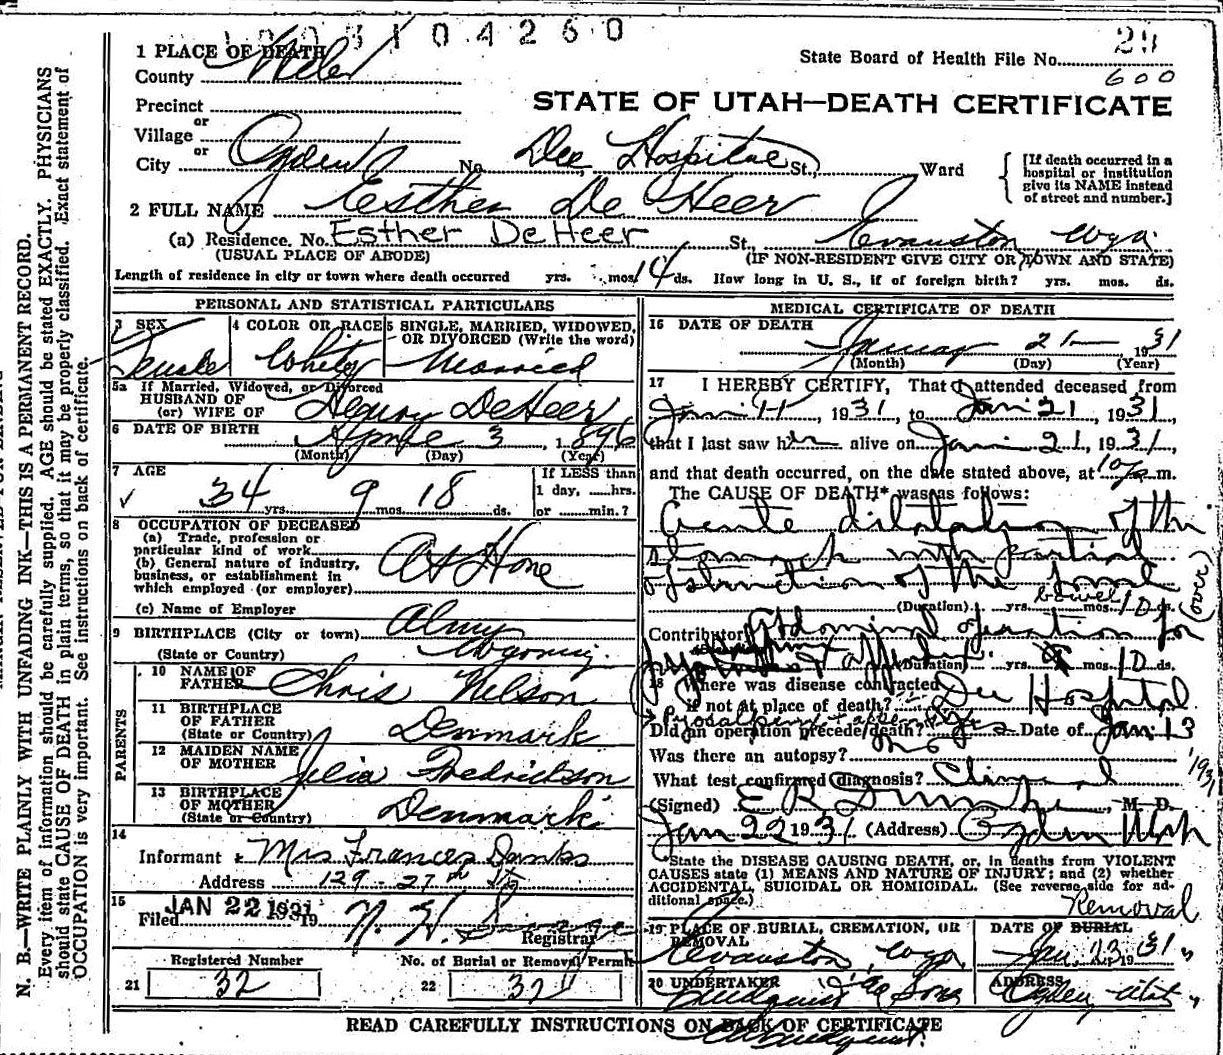 1003104260
1 PLACE OF DEATH
County Weber
State Board of Health File No. 29
600
Precinct
or
Village
or
STATE OF UTAH—DEATH CERTIFICATE
City Ogden No. Dee Hospital St., Ward
[If death occurred in a
hospital or institution
give its NAME instead
of street and number.]
2 FULL NAME Esther De Heer
(a) Residence. No. Esther DeHeer St., Evanston Wyo.
(USUAL PLACE OF ABODE) (IF NON-RESIDENT GIVE CITY OR TOWN AND STATE)
Length of residence in city or town where death occurred yrs. mos. 14 ds. How long in U. S., if of foreign birth? yrs. mos. ds.
PERSONAL AND STATISTICAL PARTICULARS
3 SEX 4 COLOR OR RACE 5 SINGLE, MARRIED, WIDOWED,
OR DIVORCED (Write the word)
Female White Married
5a If Married, Widowed, or Divorced
HUSBAND OF
(or) WIFE OF DeHeer
6 DATE OF BIRTH April 3, 1896
(Month) (Day) (Year)
7 AGE
34 yrs. 9 mos. 18 ds.
If LESS than
1 day, ......hrs.
or ......min.?
8 OCCUPATION OF DECEASED
(a) Trade, profession or
particular kind of work
(b) General nature of industry,
business, or establishment in
which employed (or employer)
At Home
(c) Name of Employer
9 BIRTHPLACE (City or town) Almy
(State or Country) Wyoming.
PARENTS
10 NAME OF
FATHER Chris Nelson
11 BIRTHPLACE
OF FATHER
(State or Country) Denmark
12 MAIDEN NAME
OF MOTHER Julia Fredrickson
13 BIRTHPLACE
OF MOTHER
(State or Country) Denmark
14
Informant Mrs Frances Danks
Address 129 - 27th St
15
Filed JAN 22 1931 19 N. H. Savage
Registrar
Registered Number No. of Burial or Removal Permit
21 32 22 32
MEDICAL CERTIFICATE OF DEATH
16 DATE OF DEATH
January 21 1931
(Month) (Day) (Year)
17 I HEREBY CERTIFY, That I attended deceased from
Jan 11, 1931, to Jan 21, 1931,
that I last saw her alive on Jan 21, 1931,
and that death occurred, on the date stated above, at m.
The CAUSE OF DEATH* was as follows:
Acute dilatation of the
stomach with partial
obstruction of the small
bowel
(Duration) yrs. mos. 10 ds.
(over)
Contributory Abdominal operation for
(Duration) yrs. mos. 10 ds.
18 Where was disease contracted
if not at place of death? Dee Hospital
Did an operation precede death? yes Date of Jan 13
1931
Was there an autopsy? no
What test confirmed diagnosis? Clinical
(Signed) E R M. D.
Jan 22 1931 (Address) Ogden Utah
*State the DISEASE CAUSING DEATH, or, in deaths from VIOLENT
CAUSES state (1) MEANS AND NATURE OF INJURY; and (2) whether
ACCIDENTAL, SUICIDAL OR HOMICIDAL. (See reverse side for ad-
ditional space.)
Removal
19 PLACE OF BURIAL, CREMATION, OR
REMOVAL
Evanston, Wyo.
DATE OF BURIAL
Jan. 23, 1931
20 UNDERTAKER
Lindquist & Sons
ADDRESS
Ogden Utah
READ CAREFULLY INSTRUCTIONS ON BACK OF CERTIFICATE
N. B.—WRITE PLAINLY WITH UNFADING INK—THIS IS A PERMANENT RECORD.
Every item of information should be carefully supplied. AGE should be stated EXACTLY. PHYSICIANS
should state CAUSE OF DEATH in plain terms, so that it may be properly classified. Exact statement of
OCCUPATION is very important. See instructions on back of certificate.